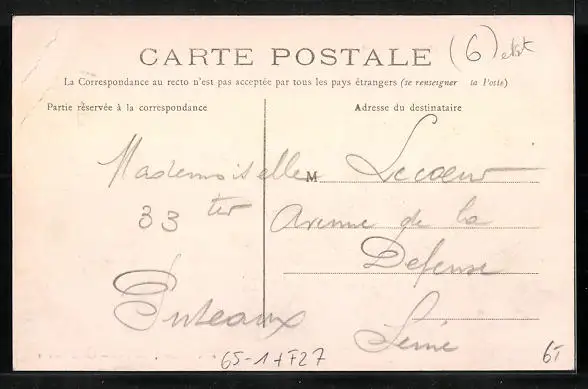 CARTE POSTALE (6)
La Correspondance au recto n'est pas acceptée par tous les pays étrangers (se renseigner la Poste)
Partie réservée à la correspondance
Adresse du destinataire
Mademoiselle M Lecoeur
33 ter Avenue de la
Defense
Puteaux Seine
65-1+F27